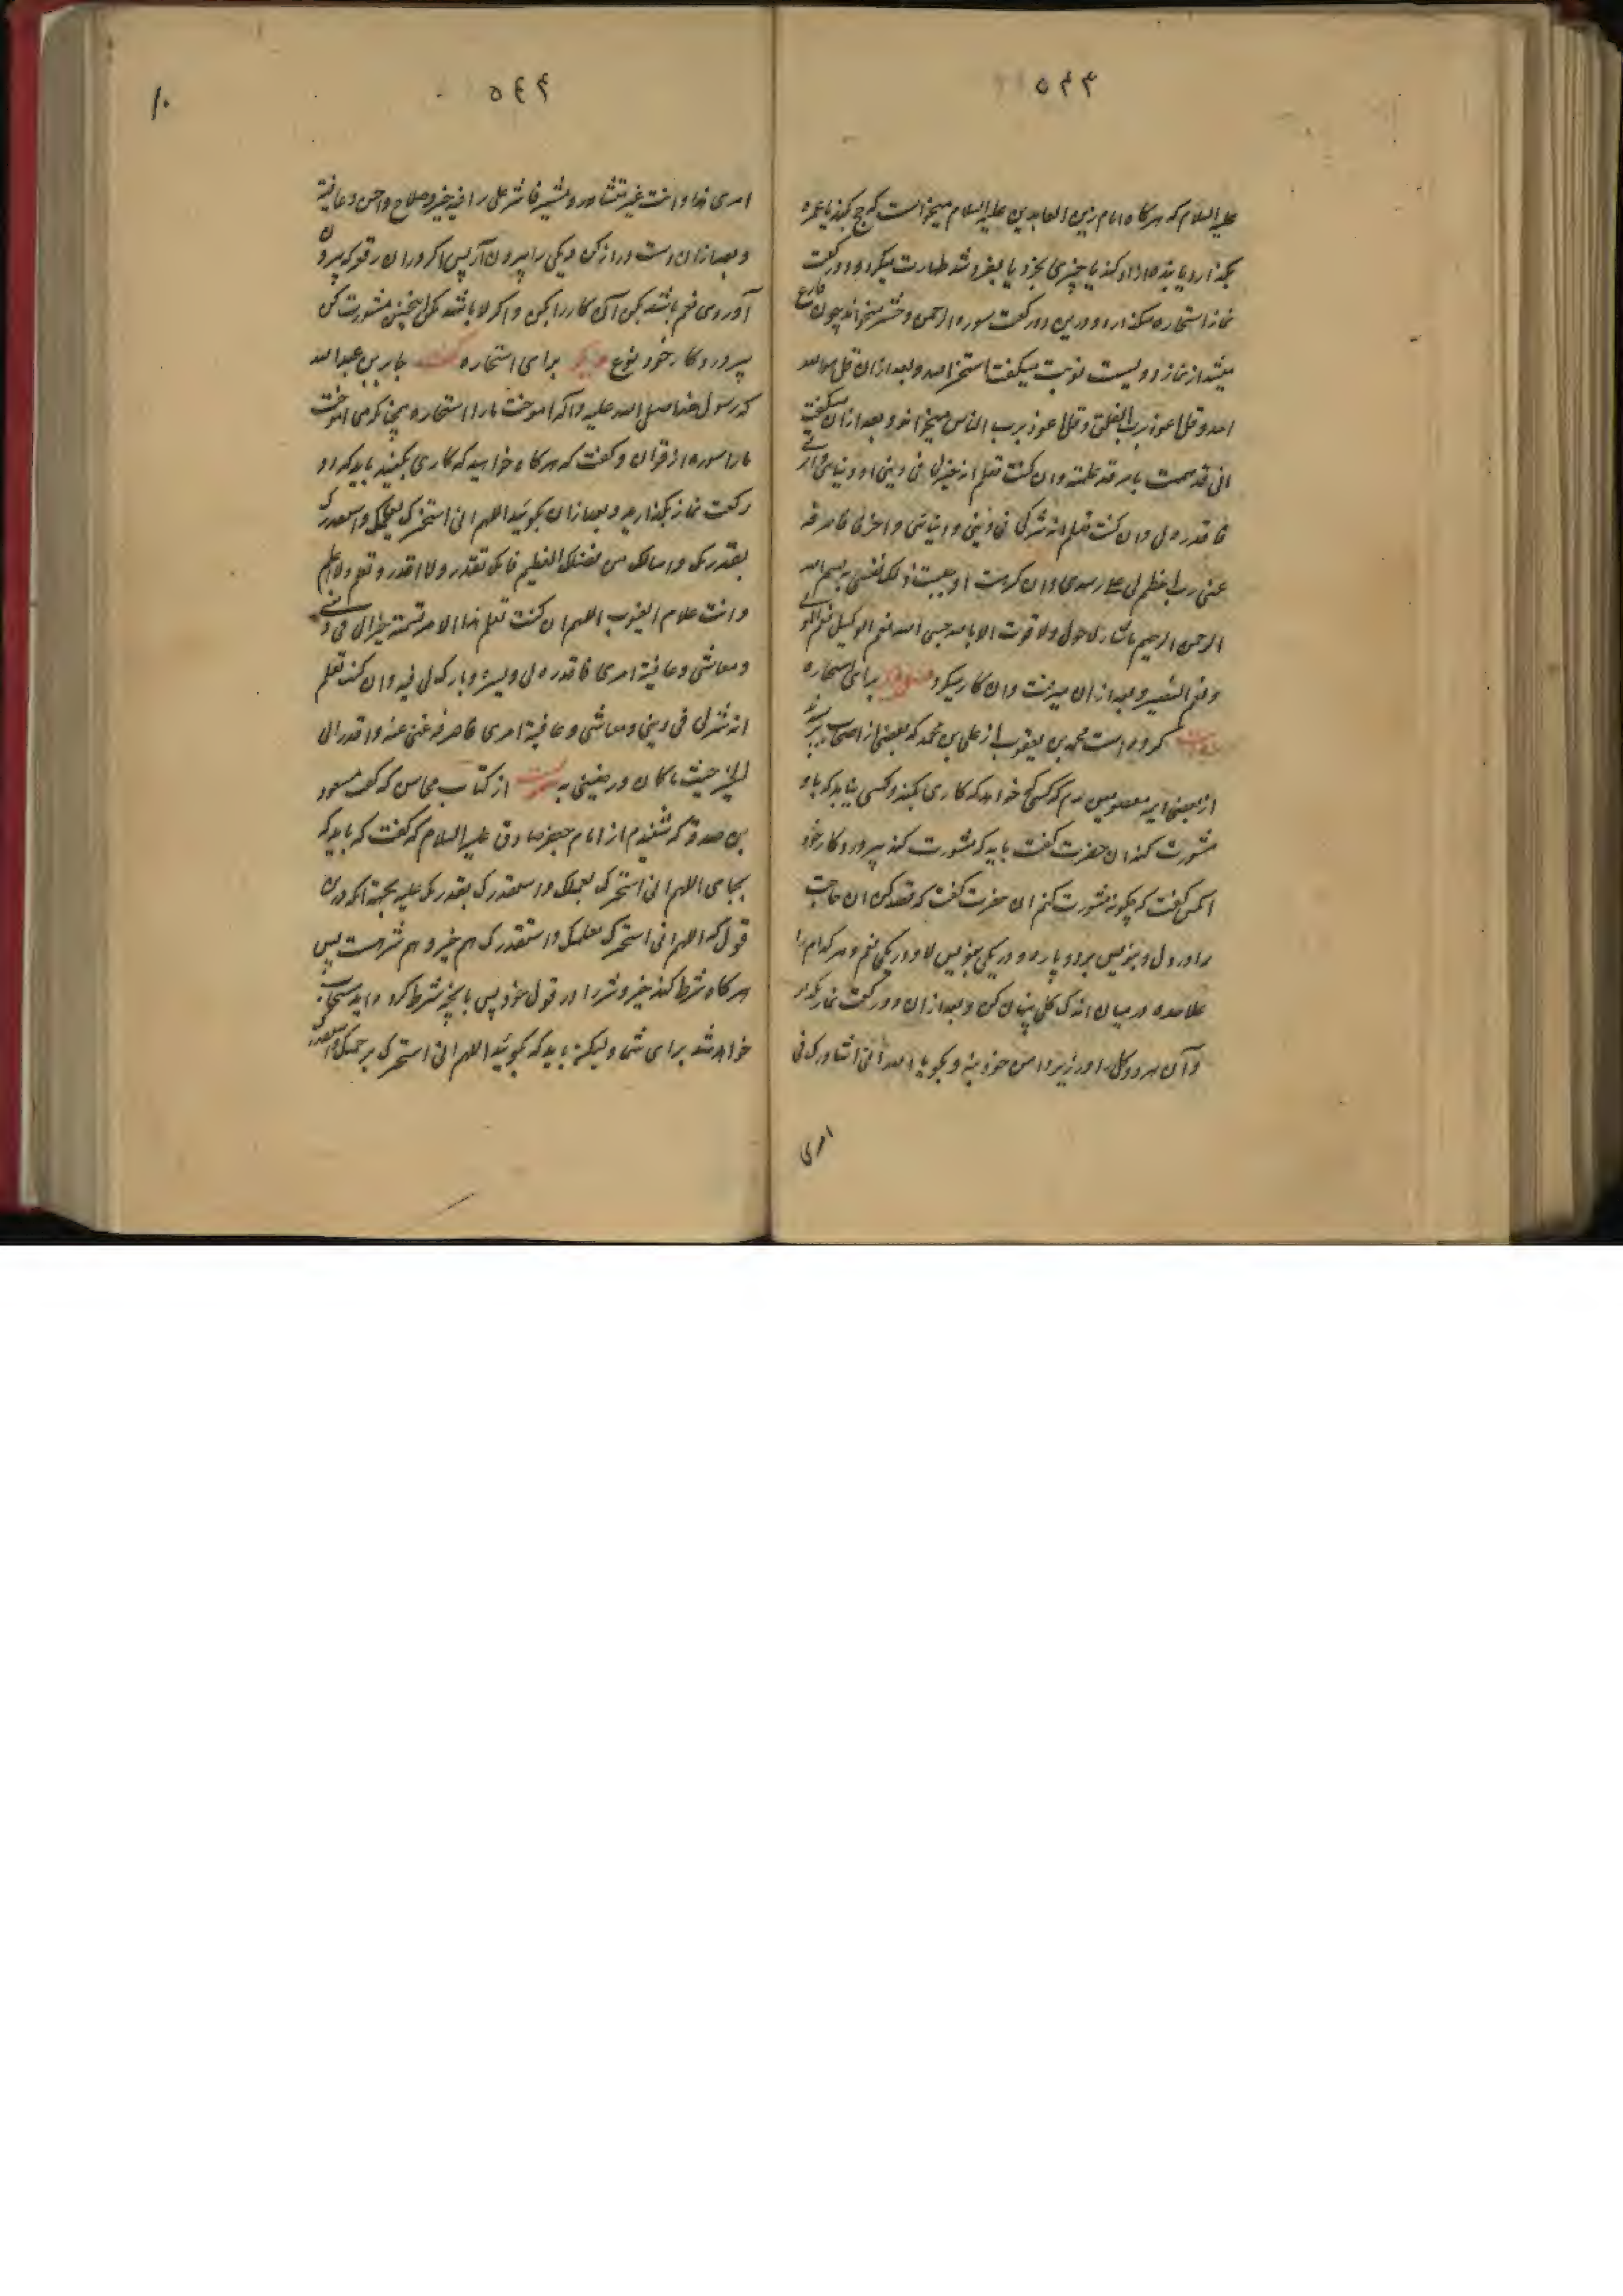 علیه السلام که هرکاه امام زین العابدین علیه السلام میخواست که حج کند یا عمره
بکذارد یا بنده ازاد کند یا چیزی بخرد یا بفروشد طهارت میکرد و دو رکعت
نماز استخاره میکذارد و درین دو رکعت سوره الرحمن و حشر میخواند چون فارغ
میشد از نماز دویست نوبت میکفت استخیر الله و بعد ازان قل هو الله
احد و قل اعوذ برب الفلق و قل اعوذ برب الناس میخواند و بعد ازان میکفت
انی قد هممت بامر قد علمته و ان کنت تعلم انه خیر لی فی دینی و دنیای و اخرتی
فاقدره لی و ان کنت تعلم انه شر لی فی دینی و دنیای و اخرتی فاصرفه
عنی رب اعظم لی علی رشدی و ان کرهت او حببت ذلک نفسی بسم الله
الرحمن الرحیم ماشاء الله لا حول ولا قوت الا بالله حسبی الله نعم الوکیل نعم المولی
و نعم النصیر و بعد ازان میرفت و ان کار میکرد برای استخاره
کرده است محمد بن یعقوب از علی بن محمد که بعضی از اصحاب پرسید
از بعضی ایمه معصومین ۴م که کسی خواهد که کاری بکند و کسی نیابد که باو
مشورت کند ان حضرت کفت باید که مشورت کند بپروردکار خود
انکس کفت که چکونه مشورت کنم ان حضرت کفت که قصد کن ان حاجت
را در دل و بنویس بر دو پاره و در یکی بنویس لا و در یکی نعم و هر کدام را
علاحده در میان اندک کل پنهان کن و بعد ازان دو رکعت نماز بکذار
و آن هر دو کل را در زیر دامن خود بنه و بکو یا الله انی اشاورک فی
امری
۵۴۴
امری هذا و انت خیر مستشار و مشیر فاشر علی بما فیه خیر و صلاح و احسن و عافیة
و بعد ازان دست دراز کن و یکی را بیرون آر پس اکر در ان رقعه که بیرون
آوردی نعم باشد بکن آن کار را بکن و اکر لا باشد مکن اینچنین مشورت کن
بپروردکار خود نوع برای استخاره جابر بن عبدالله
که رسول خدا صلی الله علیه و اله اموخت ما را استخاره چنانکه می اموخت
ما را سوره از قران و کفت که هر کاه خواهید که کاری بکنید باید که دو
رکعت نماز بکذارید و بعد ازان بکوئید اللهم انی استخیرک بعلمک و استقدرک
بقدرتک و اسالک من فضلک العظیم فانک تقدر ولا اقدر و تعلم ولا اعلم
و انت علام الغیوب اللهم ان کنت تعلم هذا الامر خیر لی فی دینی
و معاشی و عاقبة امری فاقدره لی و یسره و بارک لی فیه و ان کنت تعلم
انه شر لی فی دینی و معاشی و عاقبة امری فاصرفه عنی عنه و اقدر لی
الخیر حیث ما کان و رضینی به از کتاب محاسن که کفت مسعود
بن صدقه که شنیدم از امام جعفر صادق علیه السلام که کفت که باید که
بجای اللهم انی استخیرک بعلمک و استقدرک بقدرتک علیه بجهة انکه درین
قول که اللهم انی استخیرک بعلمک و استقدرک هم خیر و هم شر هست پس
هر کاه شرط کند خیر و شر را در قول خود پس بانچه شرط کرده اید مستجاب
خواهد شد برای شما ولیکن باید که بکوئید اللهم انی استخیرک برحمتک و استقدرک